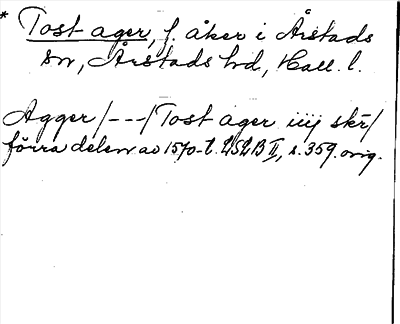 * Tost ager, f. åker i Årstads
sn, Årstads hd, Hall. l.
Agger /---/ Tost ager iiij skr̄/
förra delen av 1570-t. LSLB II, s. 359. orig.